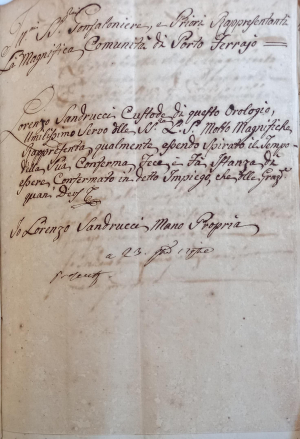 Ill.ri SS.ri Gonfaloniere, e Priori Rappresentanti
La Magnifica Comunità di Porto Ferrajo
Lorenzo Sandrucci Custode di questo Orologio,
Umilissimo Servo delle SS.rie L.L. Molto Magnifiche
Rappresenta qualmente essendo spirato il Tempo
della Sua Conferma Fece e Fà Istanza di
essere Confermato in detto Impiego, che delle Graz.
quam Deus
Io Lorenzo Sandrucci Mano Propria
a 23